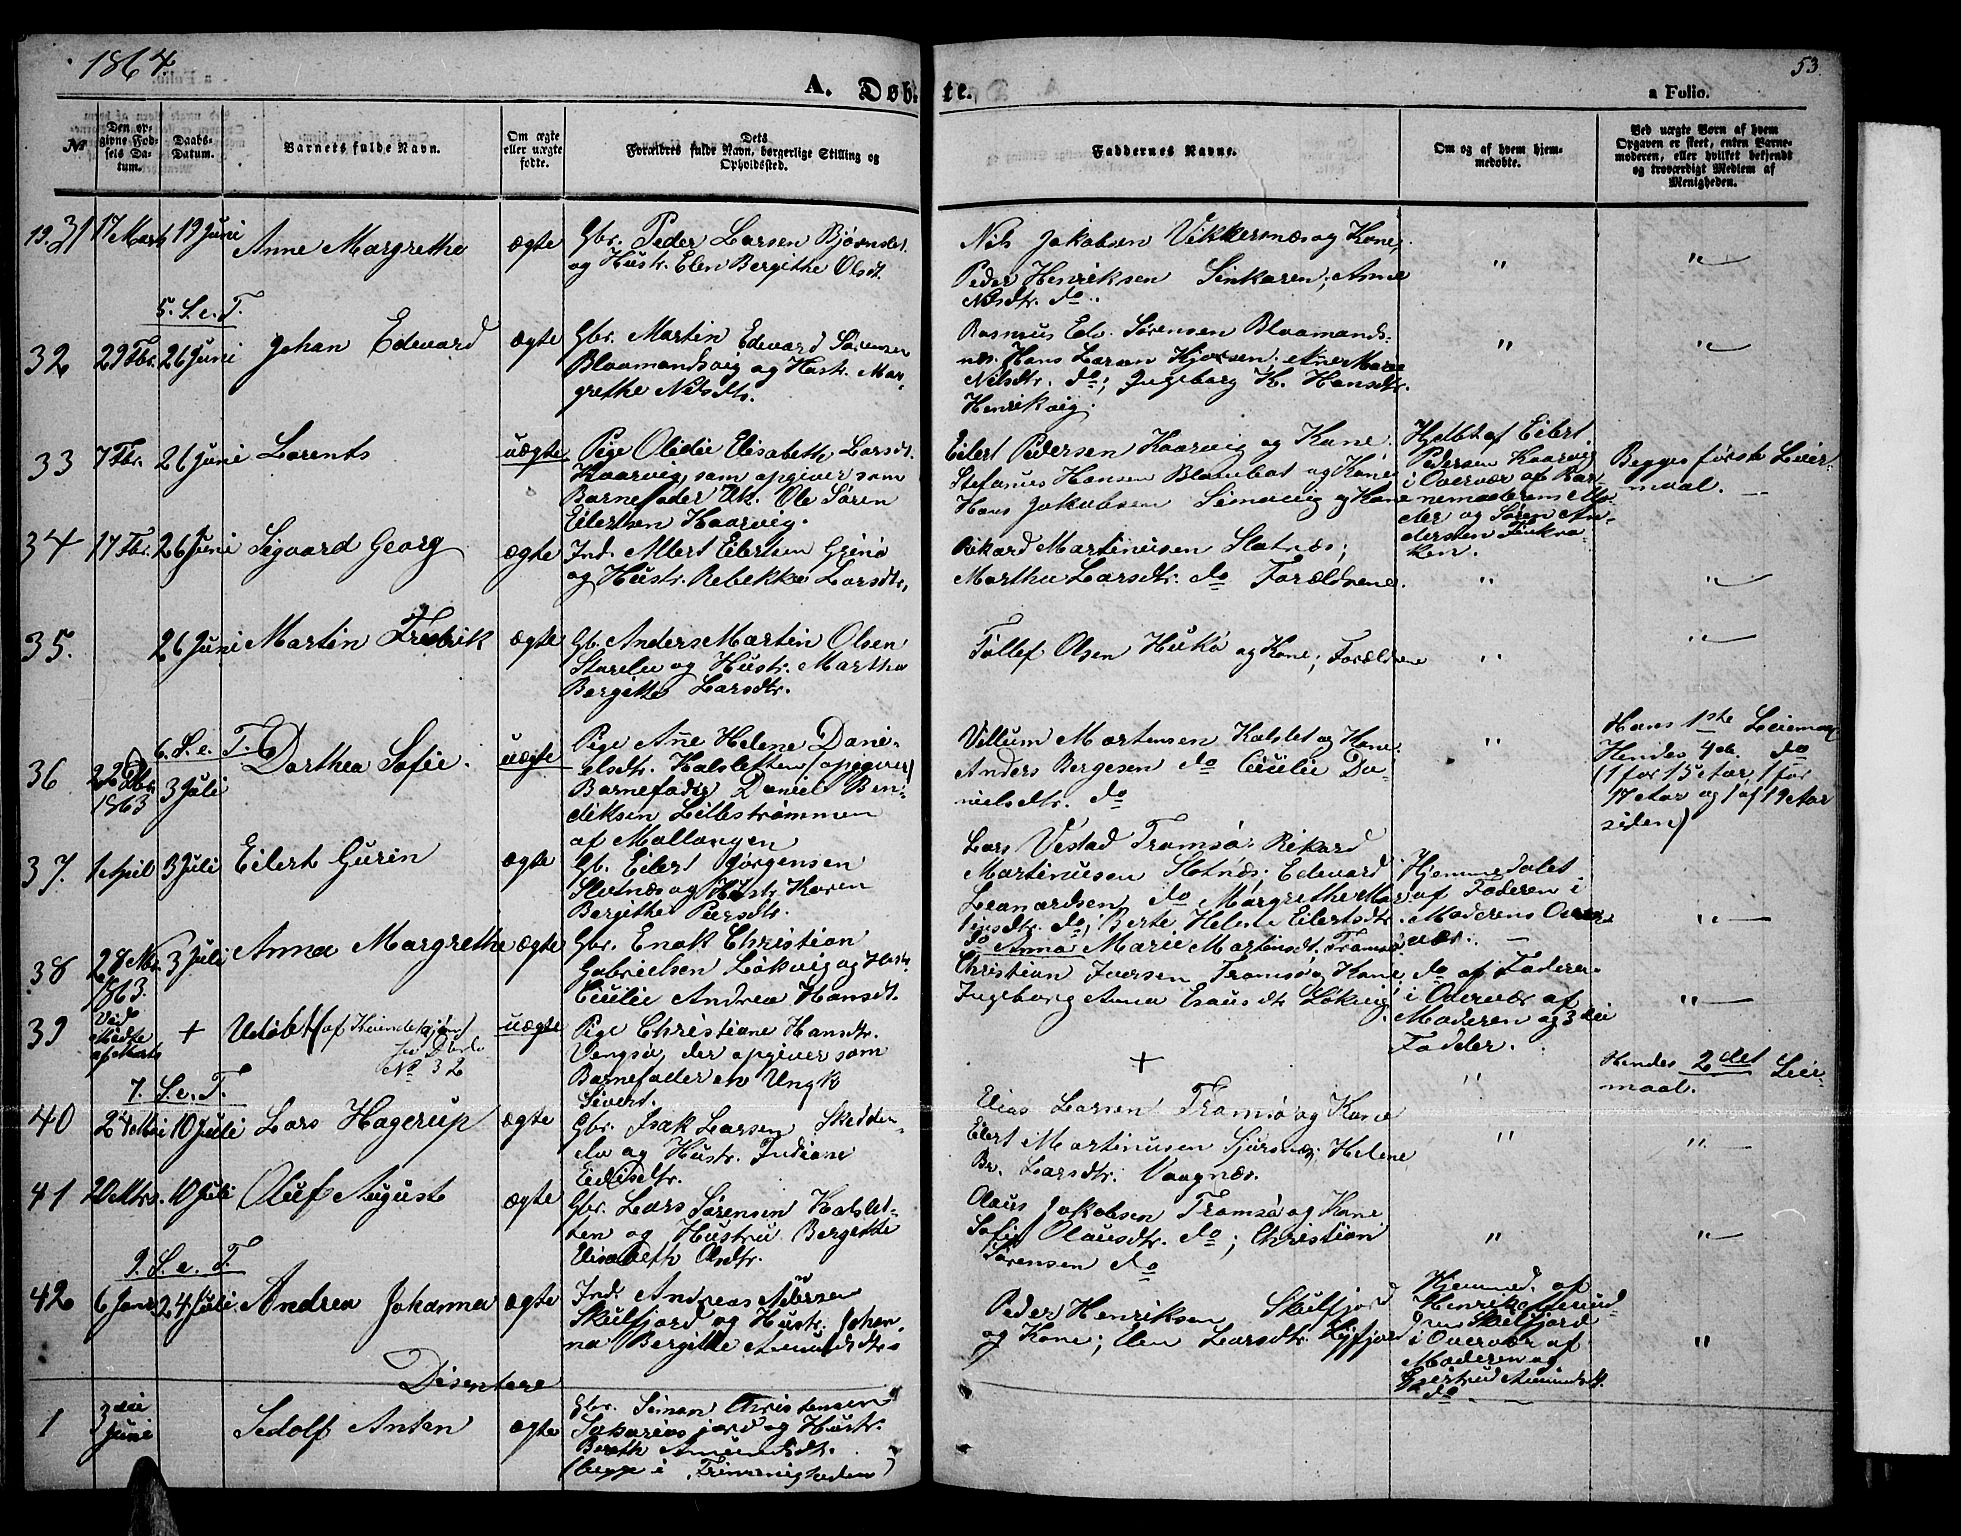 1864.
53.
A. Døb-
te.
a Folio.
No
Den op-
givne Fød-
sels Da-
tum.
Daabs-
Datum.
Barnets fulde Navn.
Om ægte
eller uægte
fødte.
Dets
Forældres fulde Navn, borgerlige Stilling og
Opholdssted.
Faddernes Navne.
Om og af hvem hjem-
medøbte.
Ved uægte Børn af hvem
Opgaven er skeet, enten Barne-
moderen, eller hvilket bekjendt
og troværdigt Medlem af
Menigheden.
31 17 Marts 19 Juni Anne Margrethe ægte
Gbr. Peder Larsen
og Hustr. Elen Bergithe Olsdt.
Nils Jakobsen Vikkersnæs og Kone,
Peder Henriksen Sinkaren; Anne
Nilsdtr. do.
" "
5. S. e. T.
32 29 Fbr. 26 Juni Johan Edevard ægte
Gbr. Martin Edevard Sørensen
Blaamandsvig og Hustr. Mar-
grethe Nilsdtr.
Rasmus Edv. Sørensen Blaamands-
næs. Hans Larsen; Ane Marie
Nilsdtr. do; Ingeborg H. Hansdtr.
Henrikvig.
" "
33 7 Fbr. 26 Juni Lorents uægte
Pige Oledie Elisabeth Larsdt.
Kaarvig, som opgiver som
Barnefader Uk. Ole Søren
Eilertsen Kaarvig.
Eilert Pedersen Kaarvig og Kone.
Stefanus Hansen og Kone
Hans Jakobsen Simavig og Kone
Hjdbt af Eilert
Pedersen Kaarvig
i Overvær af Bar-
nemoderens Mo-
der og Søren An-
dersen Finkro-
ken.
Begges første Leier-
maal.
34 17 Fbr. 26 Juni Sigvard Georg ægte
Ind. Albert Eilertsen Grinø
og Hustr. Rebekka Larsdtr.
Rikard Martinusen Slotnæs;
Martha Larsdtr. do Forældrene.
" "
35. 26 Juni Martin Fredrik ægte
Gb. Anders Martin Olsen
og Hustr. Martha
Bergitte Larsdtr.
Tollef Olsen og Kone; Forældrene
" "
6. S. e. T.
36 22 Dbr. 1863 3 Juli Dorthea Sofie. uægte
Pige Ane Helene Dani-
elsdtr. Kalsletten (opgiver)
Barnefader Daniel Ben-
diksen Lillestrømmen
af Mallangen
Villum Mortensen Kalslet og Kone.
Anders Bergesen do Cicilie Da-
nielsdtr. do
"
Hans 1ste Leiemaal
Hendes 4de. do
(1 for 15 Aar, 1 for
17 Aar og 1 af 19 Aar
siden)
37. 1 April 3 Juli Eilert Gurin ægte
Gb. Eilert Jørgensen
Slotnæs og Hustr. Karen
Bergithe Peersdtr.
Lars Vestad Tromsø. Rikard
Martinusen Slotnæs; Edevard
Leonardsen do Margrethe Mar-
tinsdtr. do; Berte Helene Eilertsdtr.
do Anna Marie Martinsdt. Tromsø
Hjemmedøbt
af Faderen i
Moderens Over-
vær.
"
38 28 1863. 3 Juli Anna Margrethe ægte
Gbr. Enok Christian
Gabrielsen Løkvig og Hustr.
Cicilie Andrea Hansdt.
Christian Iversen Tromsø og Kone
Ingeborg Anna Esausdtr. Løkvig.
do af Faderen
i Overvær af
Moderen og 3die
Fadder.
"
39 Ved Midten af Marts + Udøbt uægte
No 32
Pige Christiane Hansdtr.
Vengsø, der opgiver som
Barnefader en Ungk.
Sivert.
+
"
Hendes 2det Leier-
maal.
7. S. e. T.
40 24 Mai 10 Juli Lars Hagerup ægte
Gbr. Isak Larsen
og Hustr. Indiane
Edisdtr.
Elias Larsen Tromsø og Kone
Eilert Martinusen Sjursnæs; Helene
Br. Larsdtr. Vaagnæs.
" "
41 20 Mrs. 10 Juli Oluf August ægte
Gbr. Lars Sørensen Kalslet-
ten og Hustru Bergitte
Elisabeth Olsdtr.
Olaus Jakobsen Tromsø og Kone
Sofie Olausdtr. do; Christian
Sørensen do
" "
9. S. e. T.
42 6 Janr 24 Juli Andrea Johanna ægte
Ind. Andreas Petersen
Skulfjord og Hustr. Johan-
na Bergitte Amundsdtr.
Peder Henriksen Skulfjord
og Kone; Elen Larsdtr.
Hjemmed. af
Henrik
Skulfjord
i Overvær af
Moderen og
Gjertrud Amundsdt.
do
"
Disentere
1 3die Juni Sedolf Anton ægte
Gbr. Simon Christensen
og Hustr.
Bereth Amundsdtr.
(begge i Frimenigheden)